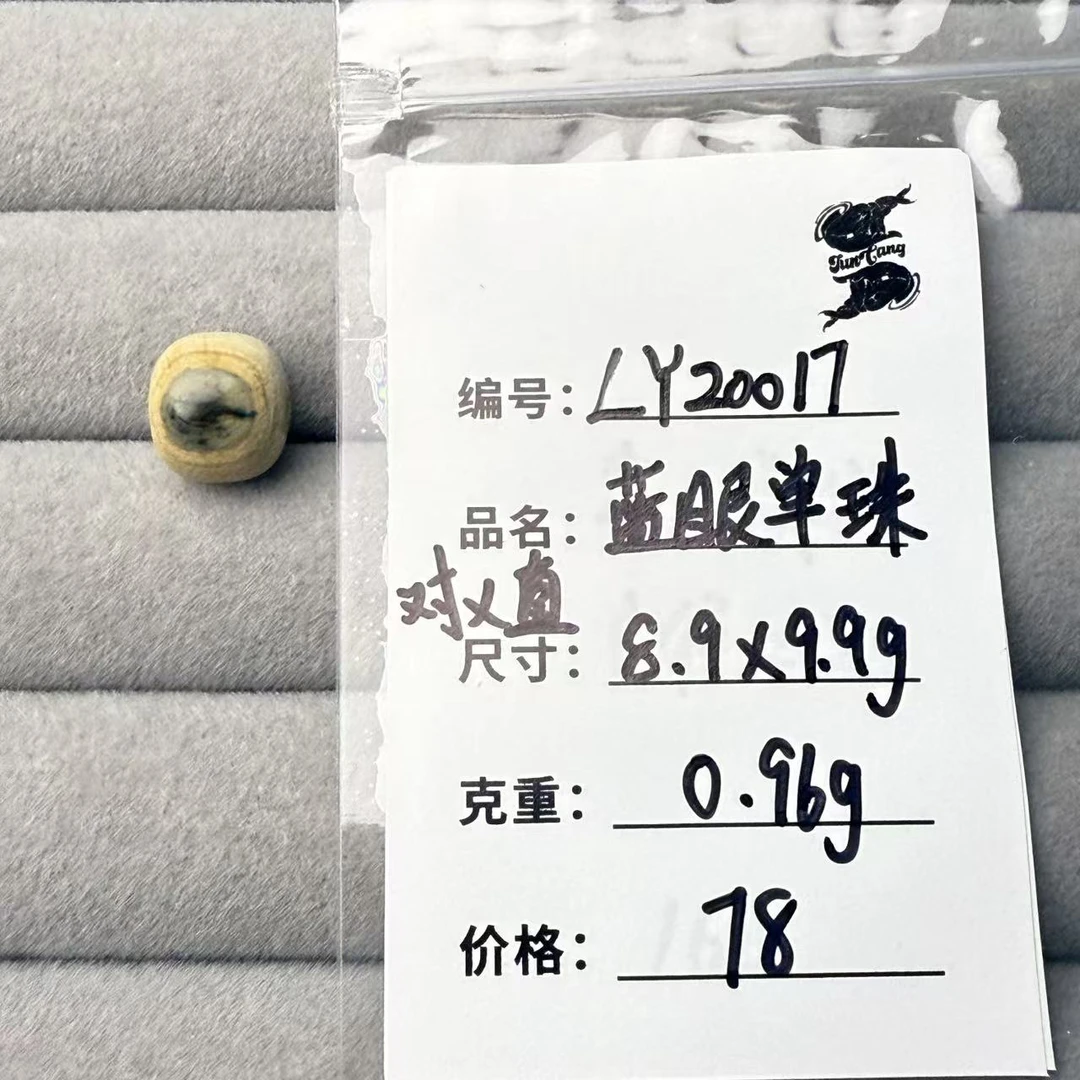 JunCang
编号：LY20017
品名：蓝眼单珠
对x直
尺寸：8.9x9.9g
克重：0.96g
价格：78